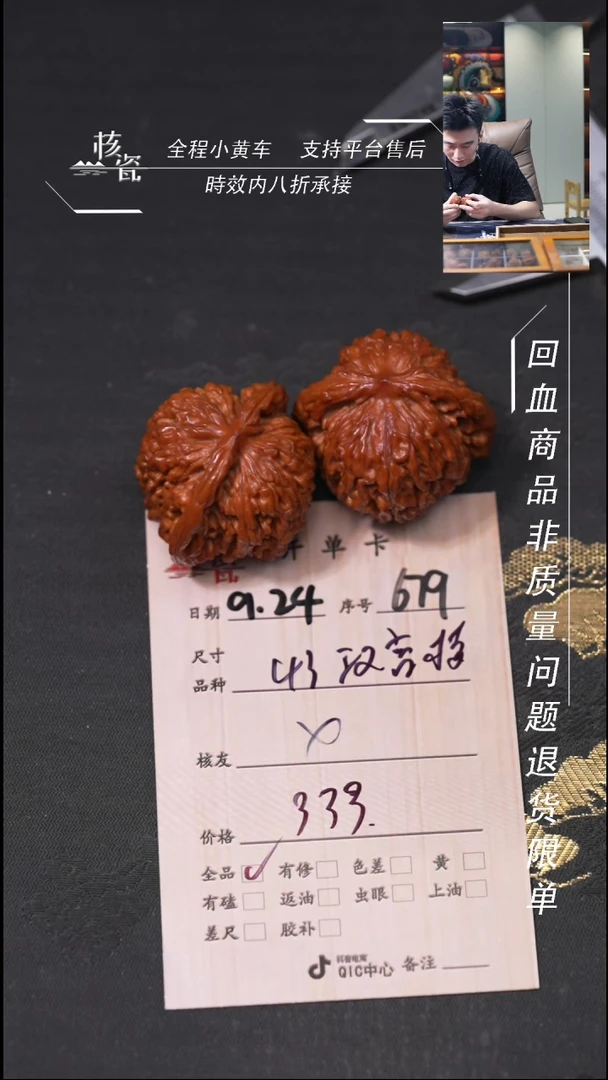 核瓷
全程小黄车 支持平台售后
時效内八折承接
回血商品非质量问题退货限单
开单卡
日期 9.24 序号 679
尺寸
品种 43
核友
价格 339.
全品 有修 色差 黄
有磕 返油 虫眼 上油
差尺 胶补
抖音电商
QIC中心 备注